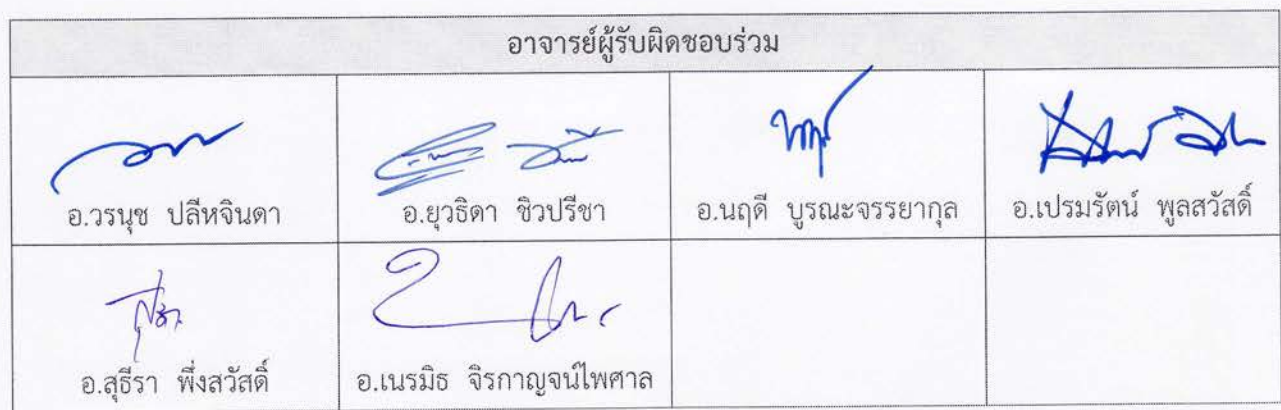 อาจารย์ผู้รับผิดชอบร่วม
อ.วรนุช ปลีหจินดา
อ.ยุวธิดา ชิวปรีชา
อ.นฤดี บูรณะจรรยากุล
อ.เปรมรัตน์ พูลสวัสดิ์
อ.สุธีรา พึ่งสวัสดิ์
อ.เนรมิธ จิรกาญจน์ไพศาล